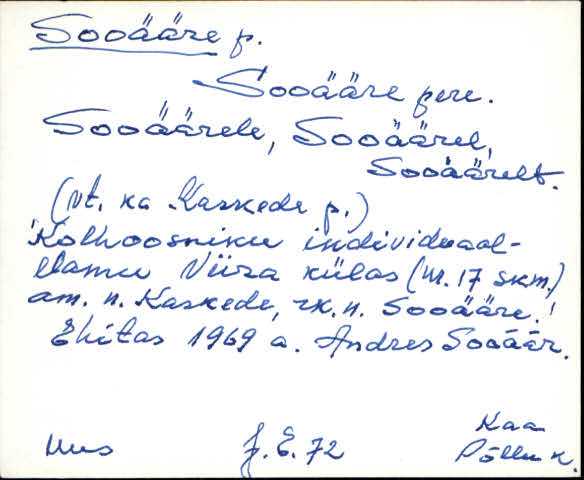 Sooääre p.
Sooääre pere.
Sooäärele, Sooäärel,
Sooäärelt.
(vt. ka Kaskede p.)
Kolhoosniku individuaal-
elamu Viira külas (nr. 17 skm.)
am. n. Kaskede, rk. n. Sooääre.
Ehitas 1969 a. Andres Sooäär.
Kaa
Uus J. E. 72 Põllu k.